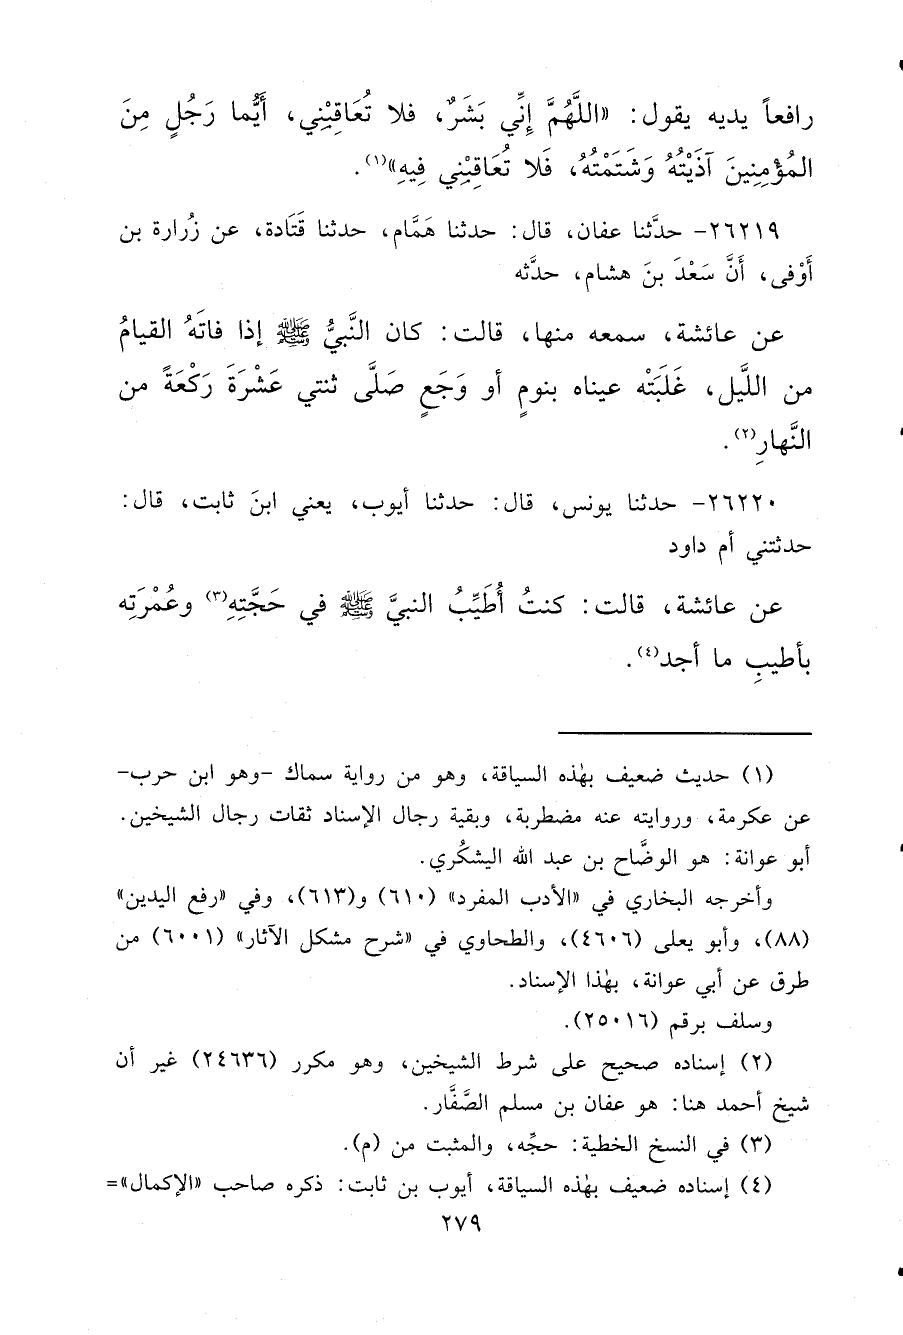 رافعاً يديه يقول: «اللَّهُمَّ إنِّي بَشَرٌ، فلا تُعَاقِبْنِي، أَيُّما رَجُلٍ مِنَ
المُؤْمِنِينَ آذَيْتُهُ وَشَتَمْتُهُ، فَلا تُعَاقِبْنِي فِيهِ»(١).
٢٦٢١٩- حدَّثنا عفان، قال: حدثنا هَمَّام، حدثنا قَتَادة، عن زُرارة بن
أَوْفى، أَنَّ سَعْدَ بنَ هشام، حدَّثه
عن عائشة، سمعه منها، قالت: كان النَّبيُّ ﷺ إذا فاتَهُ القيامُ
من اللَّيل، غَلَبَتْه عيناه بنومٍ أو وَجَعٍ صَلَّى ثنتي عَشْرَةَ رَكْعَةً من
النَّهارِ(٢).
٢٦٢٢٠- حدثنا يونس، قال: حدثنا أيوب، يعني ابنَ ثابت، قال:
حدثتني أم داود
عن عائشة، قالت: كنتُ أُطَيِّبُ النبيَّ ﷺ في حَجَّتِهِ(٣) وعُمْرَتِه
بأطيبِ ما أجد(٤).
(١) حديث ضعيف بهٰذه السياقة، وهو من رواية سماك -وهو ابن حرب-
عن عكرمة، وروايته عنه مضطربة، وبقية رجال الإسناد ثقات رجال الشيخين.
أبو عوانة: هو الوضَّاح بن عبد الله اليشكُري.
وأخرجه البخاري في «الأدب المفرد» (٦١٠) و(٦١٣)، وفي «رفع اليدين»
(٨٨)، وأبو يعلى (٤٦٠٦)، والطحاوي في «شرح مشكل الآثار» (٦٠٠١) من
طرق عن أبي عوانة، بهٰذا الإسناد.
وسلف برقم (٢٥٠١٦).
(٢) إسناده صحيح على شرط الشيخين، وهو مكرر (٢٤٦٣٦) غير أن
شيخ أحمد هنا: هو عفان بن مسلم الصَّفَّار.
(٣) في النسخ الخطية: حجِّه، والمثبت من (م).
(٤) إسناده ضعيف بهٰذه السياقة، أيوب بن ثابت: ذكره صاحب «الإكمال»=
٢٧٩